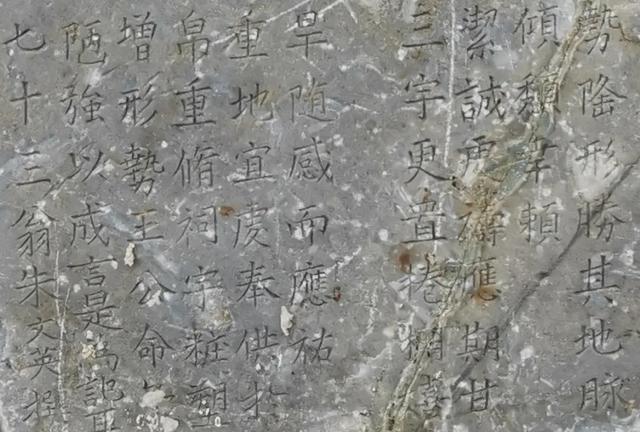 勢隆形勝其地脉
傾頹幸頼
潔誠再禱應期甘
三宇更置捲棚
旱随感而應祐
重地宜虔奉供於
帛重脩祠宇粧塑
增形勢王公命
陋強以成言是為記
七十三翁朱文英